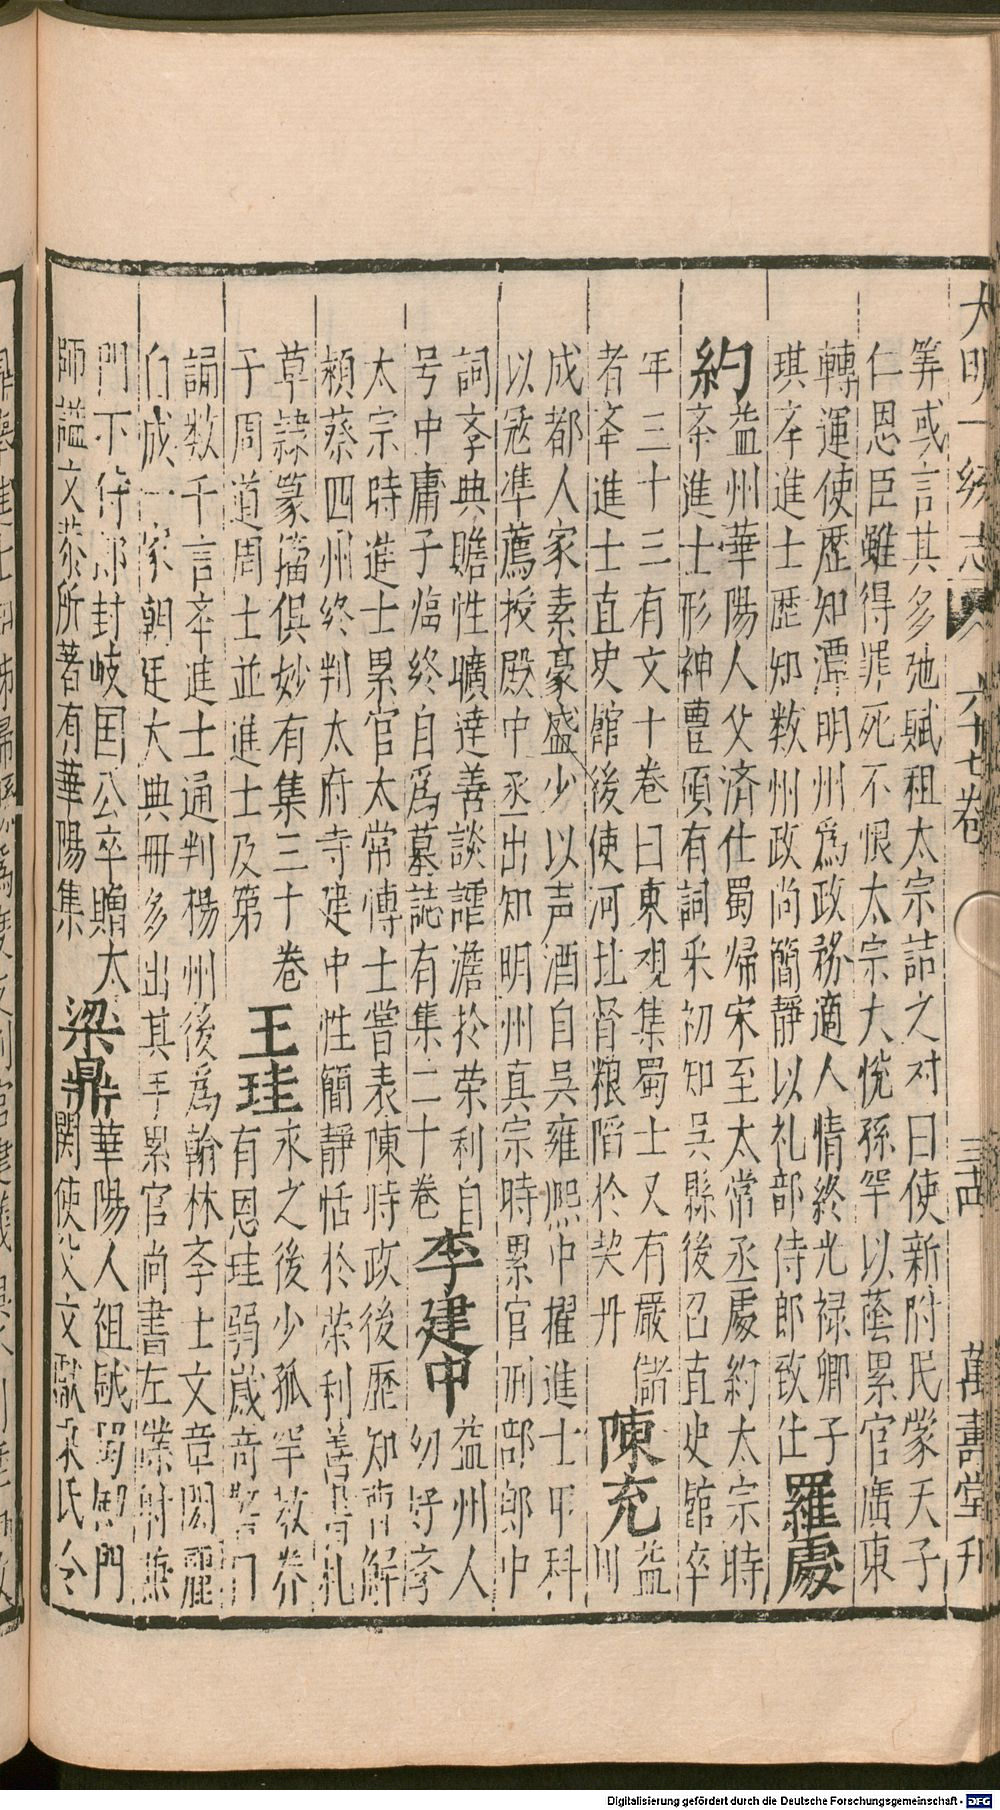 大明一統志 六十七卷 三十四 萬壽堂刊
筭或言其多弛賦租太宗詰之对曰使新附民蒙天子
仁恩臣雖得罪死不恨太宗大悅孫罕以蔭累官廣東
轉運使歷知潭明州爲政務適人情終光禄卿子
琪夲進士歷知数州政尚簡靜以礼部侍郎致仕
羅處約
益州華陽人父済仕蜀歸宋至太常丞處約太宗時
夲進士形神豊碩有詞采初知吳縣後召直史館卒
年三十三有文十卷曰東观集蜀士又有嚴儲
者夲進士直史館後使河北督粮陷於契丹
陳充
益州
成都人家素豪盛少以声酒自吳雍熙中擢進士甲科
以冦準薦授殿中丞出知明州真宗時累官刑部郎中
詞斈典贍性曠達善談謔澹於荣利自
号中庸子临終自爲墓誌有集二十卷
李建中
益州人
幼好斈
太宗時進士累官太常愽士嘗表陳時政後歷知曹解
潁蔡四州終判太府寺建中性簡靜恬於荣利善書札
草隷篆籀俱妙有集三十卷
子周道周士並進士及第
王珪
永之後少孤罕教养
有恩珪弱嵗奇警日
誦数千言夲進士通判楊州後爲翰林斈士文章閎麗
自成一家朝廷大典冊多出其手累官尚書左僕射兼
門下侍郎封岐国公卒贈太
師謚文恭所著有華陽集
梁鼎
華陽人祖鉞蜀劍門
関使父文獻宋氏令